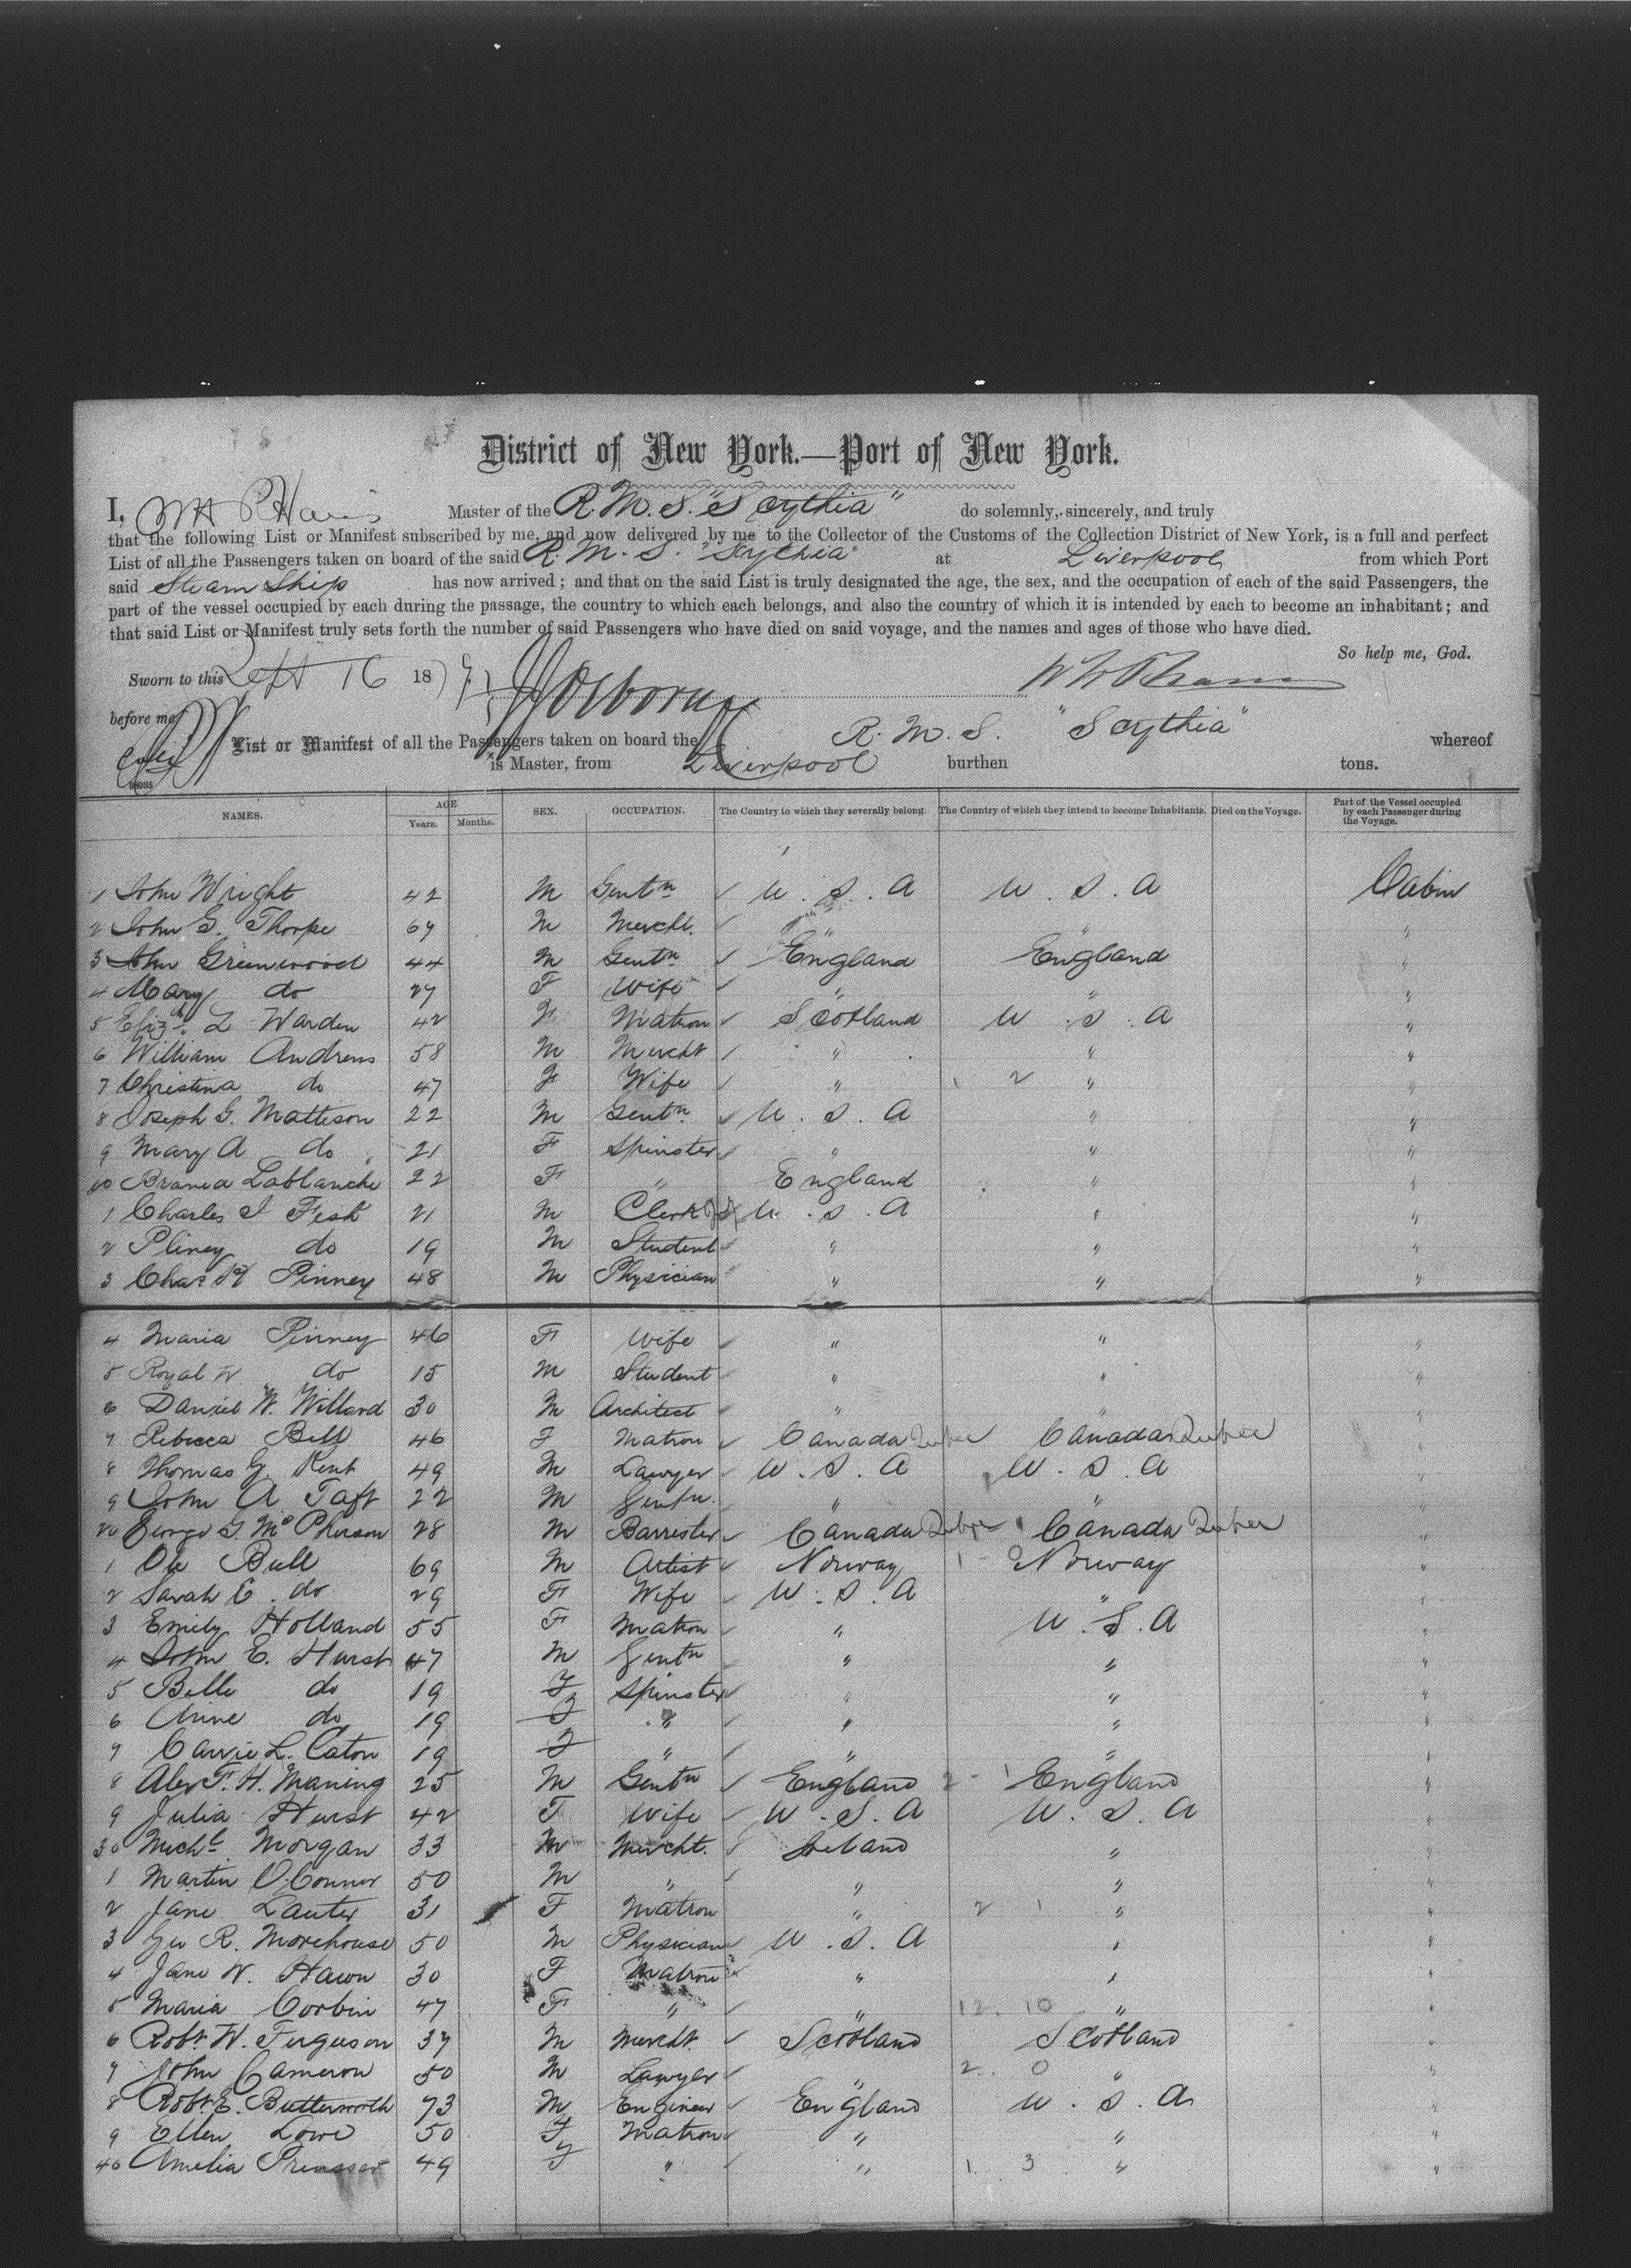 District of New York.—Port of New York.
I, Master of the R.M.S. "Scythia" do solemnly, sincerely, and truly
that the following List or Manifest subscribed by me, and now delivered by me to the Collector of the Customs of the Collection District of New York, is a full and perfect
List of all the Passengers taken on board of the said R.M.S. "Scythia" at Liverpool from which Port
said Steam Ship has now arrived; and that on the said List is truly designated the age, the sex, and the occupation of each of the said Passengers, the
part of the vessel occupied by each during the passage, the country to which each belongs, and also the country of which it is intended by each to become an inhabitant; and
that said List or Manifest truly sets forth the number of said Passengers who have died on said voyage, and the names and ages of those who have died.
So help me, God.
Sworn to this Sept 16 1879
before me
List or Manifest of all the Passengers taken on board the R.M.S. "Scythia" whereof
is Master, from Liverpool burthen tons.
NAMES. AGE Years. Months. SEX. OCCUPATION. The Country to which they severally belong. The Country of which they intend to become Inhabitants. Died on the Voyage. Part of the Vessel occupied by each Passenger during the Voyage.
1 John Wright 42 M Gentn U.S.A U.S.A Cabin
2 John G. Thorpe 69 M Mercht. " " "
3 John Greenwood 44 M Gentn England England "
4 Mary do 27 F Wife " " "
5 Eliz. L Warden 42 F Matron Scotland U.S.A "
6 William Andrews 58 M Mercht " " "
7 Christina do 47 F Wife " " "
8 Joseph G. Mattison 22 M Gentn U.S.A " "
9 Mary A do 21 F Spinster " " "
10 Lablanche 22 F " England " "
1 Charles I Fisk 21 M Clerk U.S.A " "
2 Pliney do 19 M Student " " "
3 Chas. H Pinney 48 M Physician " " "
4 Maria Pinney 46 F Wife " " "
5 Royal W do 15 M Student " " "
6 Daniel W. Willard 30 M Architect " " "
7 Rebecca Bell 46 F Matron Canada Quebec Canada Quebec "
8 Thomas G. Kent 49 M Lawyer U.S.A U.S.A "
9 John A Taft 22 M Gentn. " " "
20 George G. McPherson 28 M Barrister Canada Quebec Canada Quebec "
1 Ole Bull 69 M Artist Norway Norway "
2 Sarah C. do 29 F Wife U.S.A " "
3 Emily Holland 55 F Matron " U.S.A "
4 John E. Hurst 47 M Gentn " " "
5 Belle do 19 F Spinster " " "
6 do 19 F " " " "
7 Carrie L. Caton 19 F " " " "
8 Alex F. H. Maning 25 M Gentn England England "
9 Julia Hurst 42 F Wife U.S.A U.S.A "
30 Michl. Morgan 33 M Mercht. Ireland " "
1 Martin O'Connor 50 M " " " "
2 Jane Lauter 31 F Matron " " "
3 Geo R. Morehouse 50 M Physician U.S.A " "
4 Jane W. Hawn 30 F Matron " " "
5 Maria Corbin 47 F " " " "
6 Robt. W. Ferguson 37 M Mercht. Scotland Scotland "
7 John Cameron 50 M Lawyer " " "
8 Robt. E. Butterworth 73 M Engineer England U.S.A "
9 Ellen Lowe 50 F Matron " " "
40 Amelia 49 F " " " "